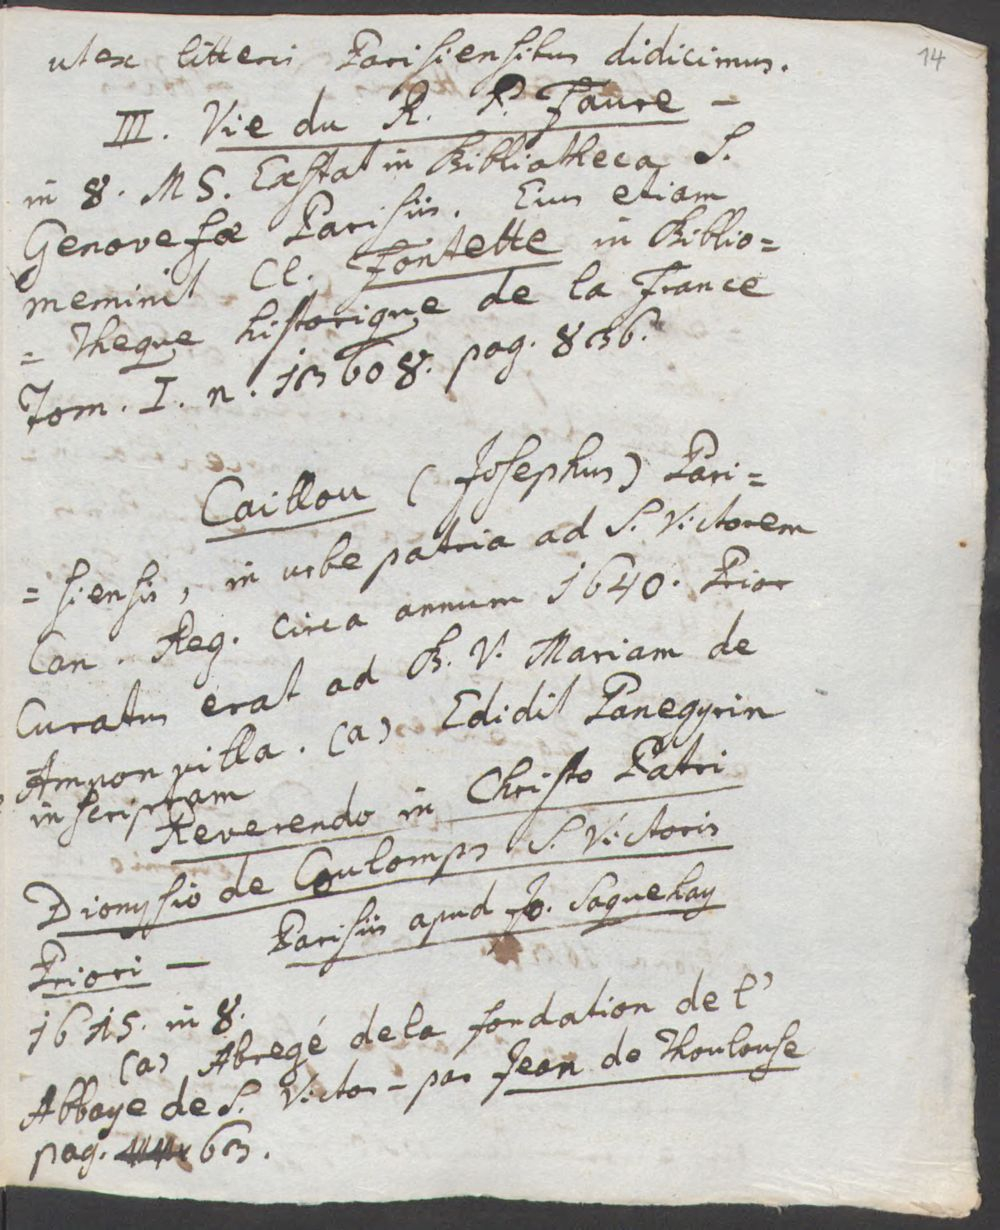 14
ut ex litteris Parisiensibus didicimus.
III. Vie du R. P. Faure —
in 8. MS. Exstat in Bibliotheca S.
Genovefæ Parisiis. Eius etiam
meminit Cl. Fontette in Biblio=
= theque historique de la France
Tom. I. n. 13608. pag. 836.
Caillou (Josephus) Pari=
= siensis, in urbe patria ad S. Victorem
Can. Reg. circa annum 1640. Prior
Curatus erat ad B. V. Mariam de
Amponvilla. (a) Edidit Panegyrin
inscriptam
Reverendo in Christo Patri
Dionysio de Coulomps S. Victoris
Priori — Parisiis apud Jo. Saquehay
in 8.
(a) Abregé de la fondation de l'
Abbaye de S. Victor - par Jean de Thoulouse
pag. 63.